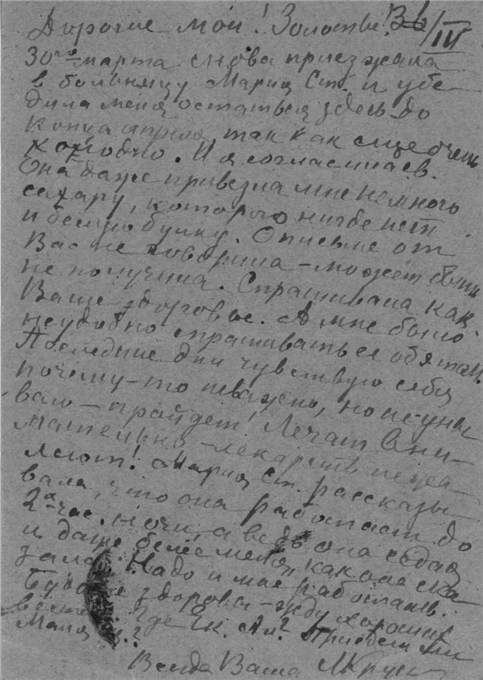 Дорогие мои! Золотые! 3/IV
30го марта снова приезжала
в больницу Мария Ст. и убе-
дила меня остаться здесь до
конца апреля, так как еще очень
холодно. И я согласилась.
Она даже привезла мне немного
сахару, которого нигде нет
и белую булку. О письме от
Вас не говорила – может быть
не получила. Спрашивала как
Ваше здоровье. А мне было
неудобно спрашивать ее об этом.
Последние дни чувствую себя
почему-то неважно, но не уны-
ваю – пройдет! Лечат вни-
мательно – лекарств не жа-
леют! Мария Ст. рассказы-
вала, что она работает до
2х час. ночи, а ведь она седая
и даже белее меня, как она ска-
зала. Надо и мне работать.
Будьте здоровы – жду хороших
вестей. Где Ек. Ал.? Привет
Маня
Всегда Ваша